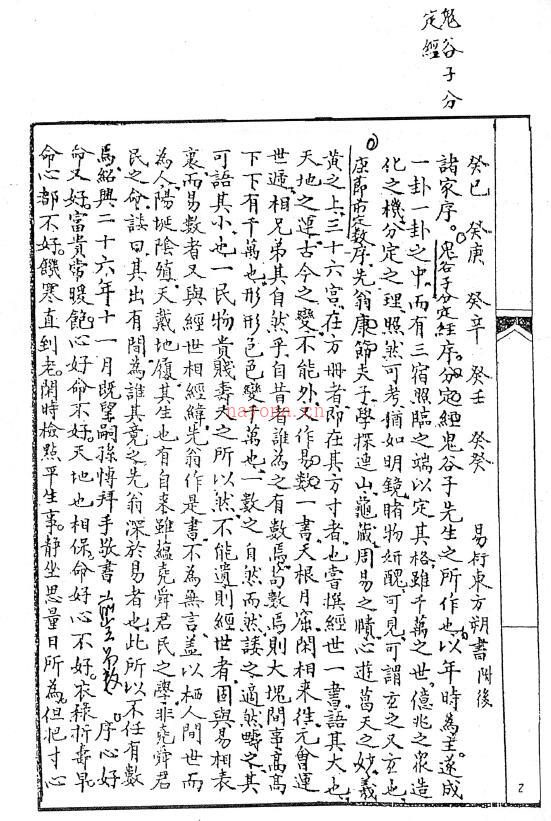 鬼谷子分
定經
癸巳 癸庚 癸辛 癸壬 癸癸 易衍東方朔書附後
諸家序。鬼谷子分定经序。分定經鬼谷子先生之所作也。以年時為主。遂成
一卦一卦之中。而有三宿照臨之端以定其格。雖千萬之世。億兆之眾造
化之機分定之理。照然可考。猶如明鏡睹物妍醜可見可謂玄之又玄也
康節前定数序。先翁康節夫子。學探連山龜藏周易之賾心遊蓋天之妙羲
黃之上三十六宮。在方冊者即在其方寸者也嘗撰經世一書。語其大也
天地之運古今之變不能外。又作易数一書天根月窟。閑相來徃元會運
世遞相兄弟其自然乎。自昔者誰為之有數焉苟數焉則大塊間事高高
下下有千萬也形形色色變千萬也一数之自然而然諉之適然疇之其
可語其小也一民物貴賤壽夭之所以然不能遺則經世者固與易相表
裏而易數者又與經世相經緯先翁作是書不為無言盖以栖人間世而
為人陽埏陰殰天戴地履其生也有自来雖蘊堯舜君民之學非堯舜君
民之命諉曰其出有間為誰其竟之先翁深於易者也此所以不任有數
焉紹興二十六年十一月既望嗣孫慱拜手敬書 序心好
命又好富貴常暖飽心好命不好。天地也相保。命好心不好。衣祿折壽早。
命心都不好。饑寒直到老。閑時檢點平生事。静坐思量日所為。但把寸心
2
nayona.cn